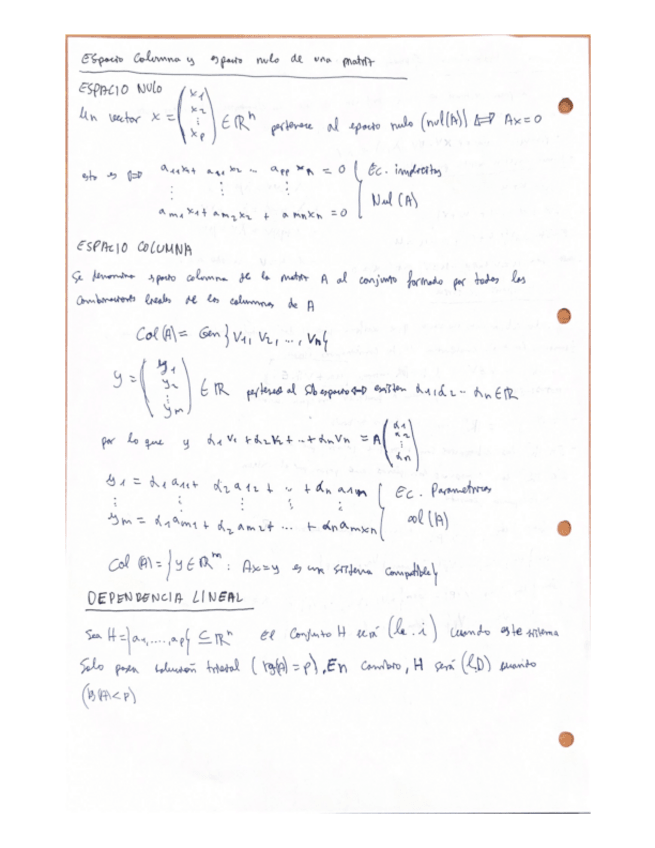 Espacio Columna y espacio nulo de una matriz
ESPACIO NULO
Un vector x = (x1 x2 ⋮ xp) ∈ ℝⁿ pertenece al espacio nulo (nul(A)) ⟺ Ax=0
esto es ⟺ a11x1 + a12x2 ... app xn = 0 } Ec. implícitas
⋮ ⋮ ⋮ Nul(A)
am1x1 + am2x2 + amnxn = 0
ESPACIO COLUMNA
Se denomina espacio columna de la matriz A al conjunto formado por todas las
combinaciones lineales de las columnas de A
Col(A) = Gen{v1, v2, ..., vn}
y = (y1 y2 ⋮ ym) ∈ ℝ pertenece al subespacio ⟺ existen α1,α2 ... αn ∈ ℝ
por lo que y α1v1 + α2v2 + ... + αnvn = A(α1 α2 ⋮ αn)
y1 = α1a11 + α2a12 + ... + αna1m } Ec. Parametricas
⋮ ⋮ ⋮ ⋮ col(A)
ym = α1am1 + α2am2 + ... + αnamxn
Col(A) = {y ∈ ℝᵐ : Ax=y es un sistema compatible}
DEPENDENCIA LINEAL
Sea H={a1,....,ap} ⊆ ℝⁿ el conjunto H será (l.i) cuando este sistema
Solo posea solución trivial (rg(A) = p), En cambio, H será (l.D) cuando
(rg(A)<p)